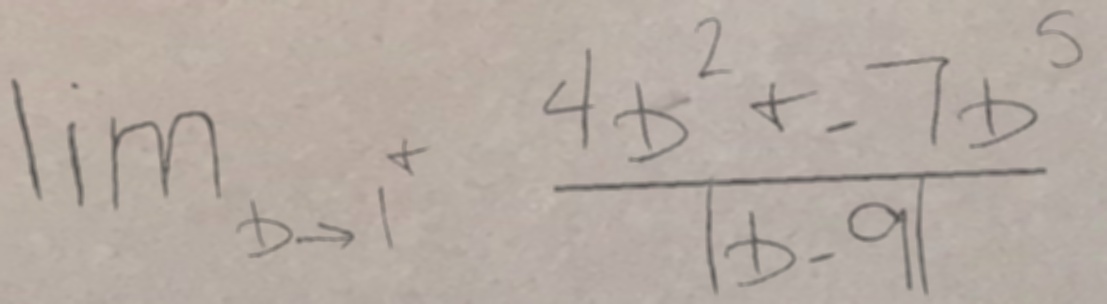 \lim_{b \to 1^+} \frac{4b^2 + -7b^5}{|b-9|}